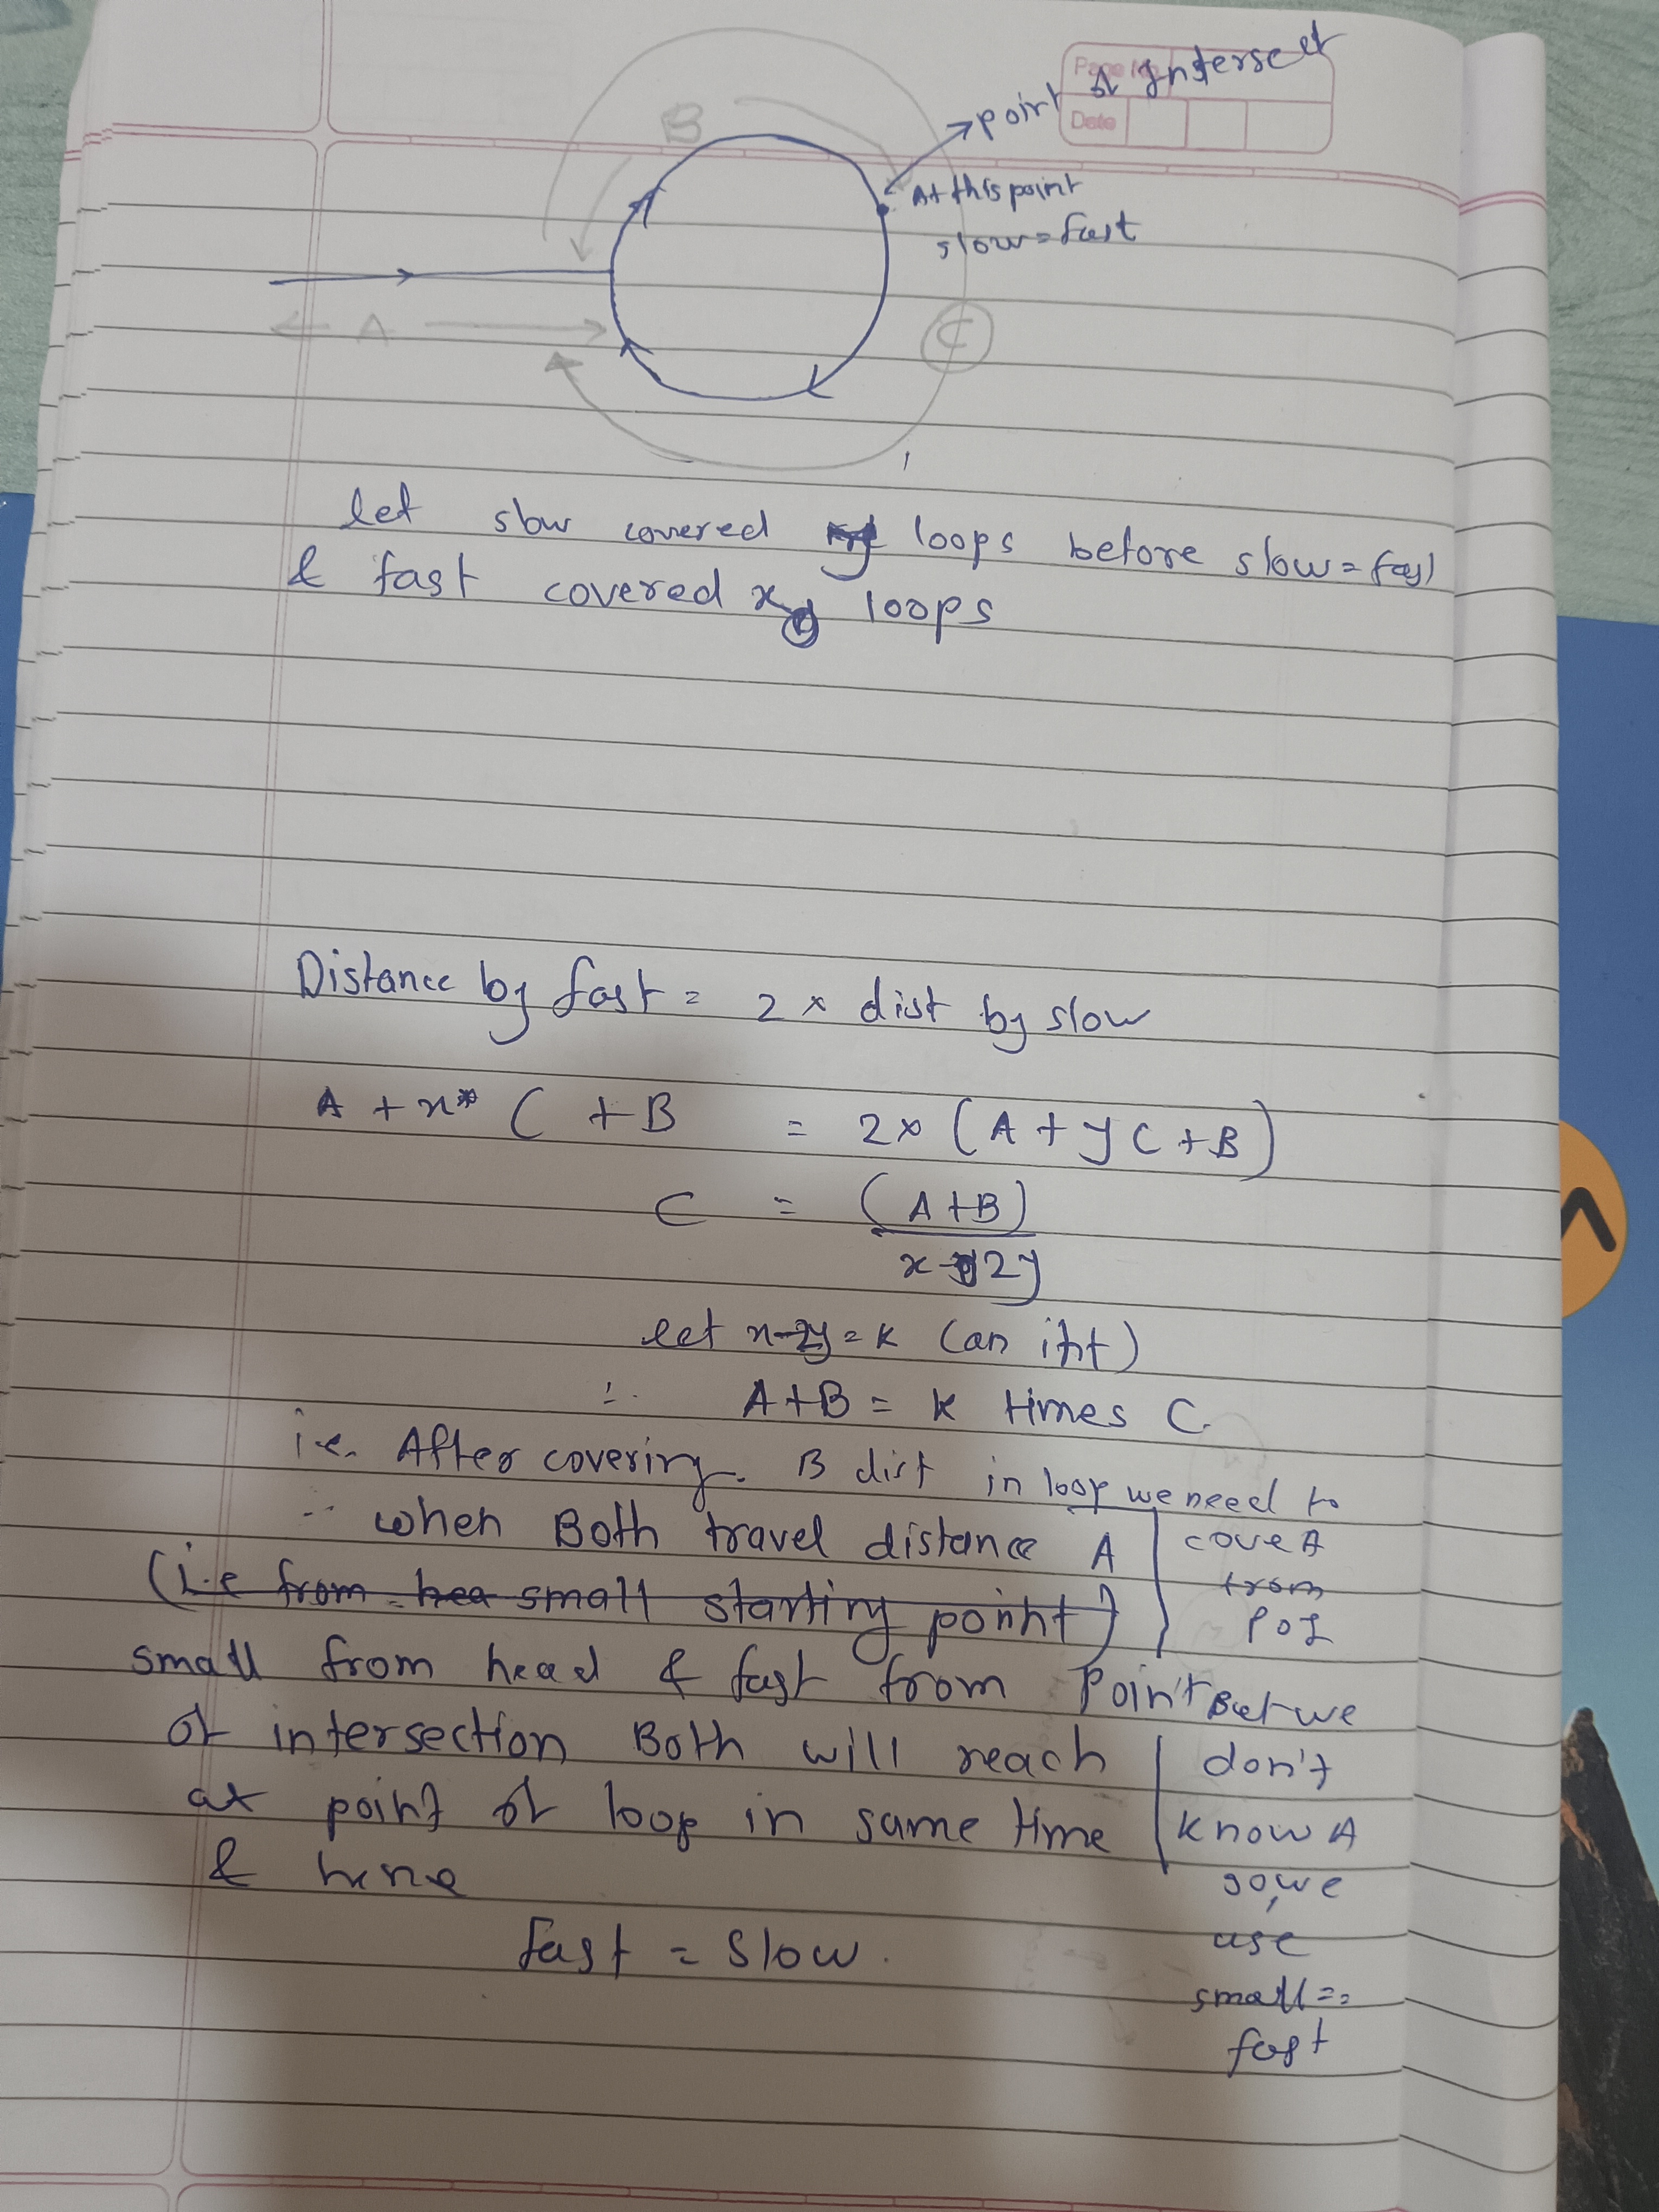 Page No.
Date
point of Intersect
B
At this point
slow = fast
A
C
let slow covered y loops before slow = fast
& fast covered x loops
Distance by fast = 2 × dist by slow
A + x* C + B = 2 × (A + y C + B)
C = (A+B)
x - 2y
let x-2y = K (an int)
∴ A+B = K times C.
i.e. After covering. B dist in loop we need to
cover A
from
POI
∴ when Both travel distance A
(i.e from small starting point)
small from head & fast from Point
of intersection Both will reach
at point of loop in same time
&
fast = slow.
But we
don't
know A
so, we
use
small ==
fast